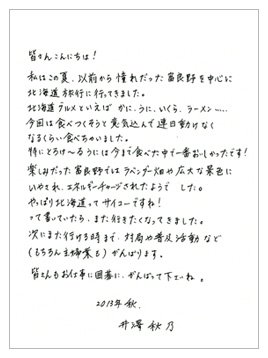 皆さんこんにちは!
私はこの夏、以前から憧れだった富良野を中心に
北海道旅行に行ってきました。
北海道グルメといえば かに、うに、いくら、ラーメン……
今回は食べつくそうと意気込んで連日動けなく
なるくらい食べちゃいました。
特にとろけ〜るうには今まで食べた中で一番おいしかったです!
楽しみだった富良野ではラベンダー畑や広大な景色に
いやされ、エネルギーチャージされたようで した。
やっぱり北海道ってサイコーですね!
って書いていたら、また行きたくなってきました。
次にまた行ける時まで、対局や普及活動など
(もちろん主婦業も)がんばります。
皆さんもお仕事に囲碁に、がんばって下さいね。
2013年 秋.
井澤 秋乃